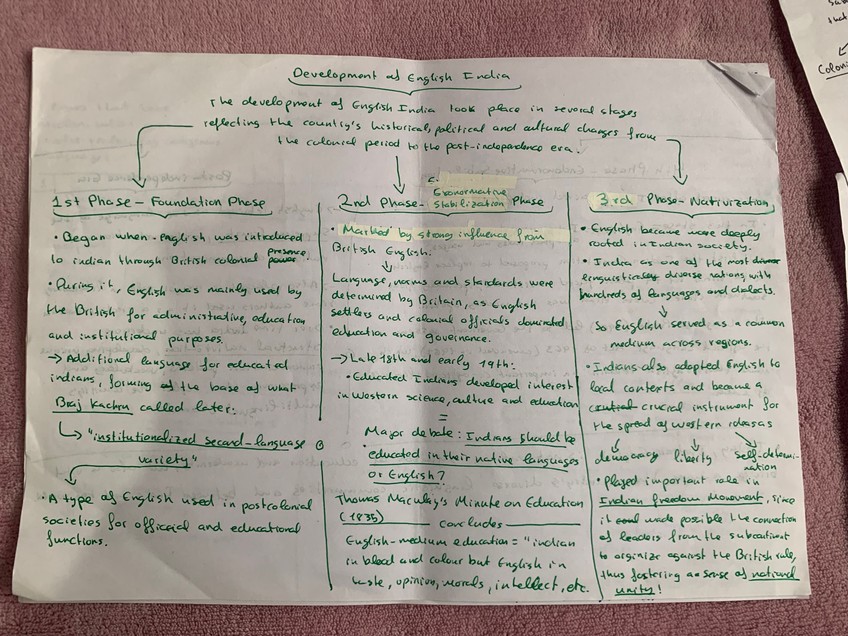 Development of English India
The development of English India took place in several stages
reflecting the country's historical, political and cultural changes from
the colonial period to the post-independence era.
1st Phase - Foundation Phase
• Began when English was introduced
to indian through British colonial presence.
power.
• During it, English was mainly used by
the British for administrative, education
and institutional purposes.
→ Additional language for educated
indians, forming of the base of what
Braj Kachru called later:
↳ "institutionalized second-language
variety"
• A type of English used in postcolonial
societies for official and educational
functions.
2nd Phase - Exonormative
Stabilization Phase
• Marked by strong influence from
British English.
Language, norms and stardards were
determined by Britain, as English
settlers and colonial officials dominated
education and governance.
→ Late 18th and early 19th:
• Educated Indians developed interest
in Western science, culture and education
=
Major debate: Indians should be
educated in their native languages
or English?
Thomas Maculay's Minute on Education
(1835) concludes
English-medium education = "indian
in blood and colour but English in
taste, opinion, morals, intellect, etc.
3rd Phase - Nativization
• English became more deeply
rooted in Indian society.
• India as one of the most
linguistically diverse nations, with
hundreds of languages and dialects.
So English served as a common
medium across regions.
• Indians also adapted English to
local contexts and became a
crucial instrument for
the spread of western ideas as
democracy liberty self-determi-
nation
• Played important role in
Indian freedom movement, since
it made possible the connection
of leaders from the subcontinent
to orginize against the British rule,
thus fostering a sense of national
unity!
that
Coloni